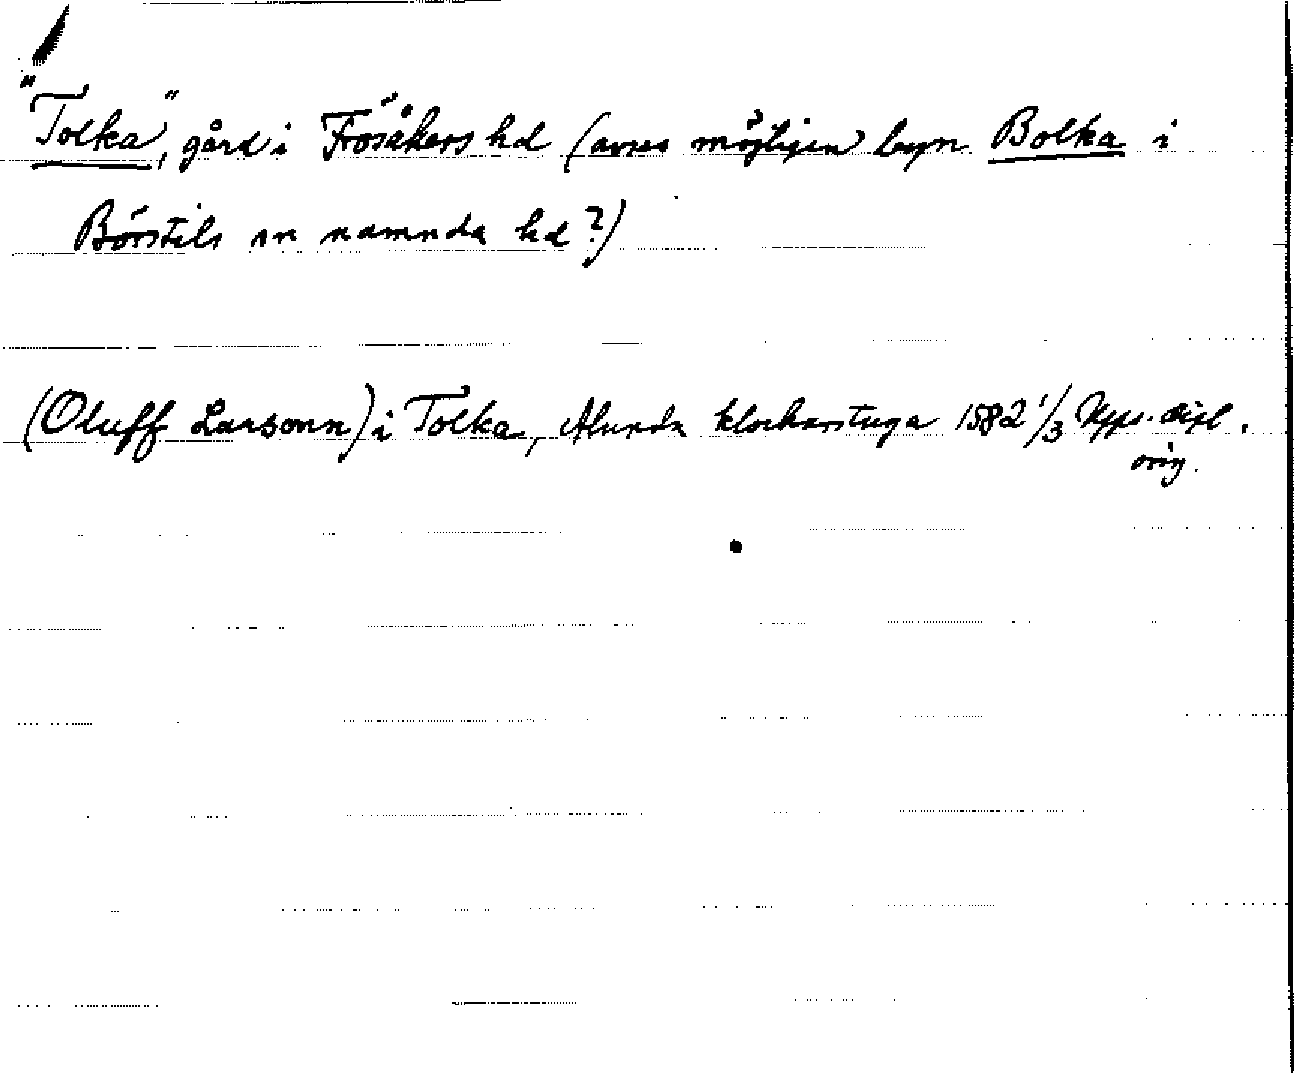 "Tolka", gård i Frösåkers hd (avses möjligen byn Bolka i
Börstils sn nämnda hd?)
(Oluff Larsonn) i Tolka, Alunda klockarstuga 1582 1/3 Upps. dipl.
orig.